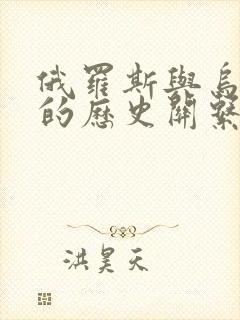 俄羅斯與烏
的歷史關繫
洪昊天